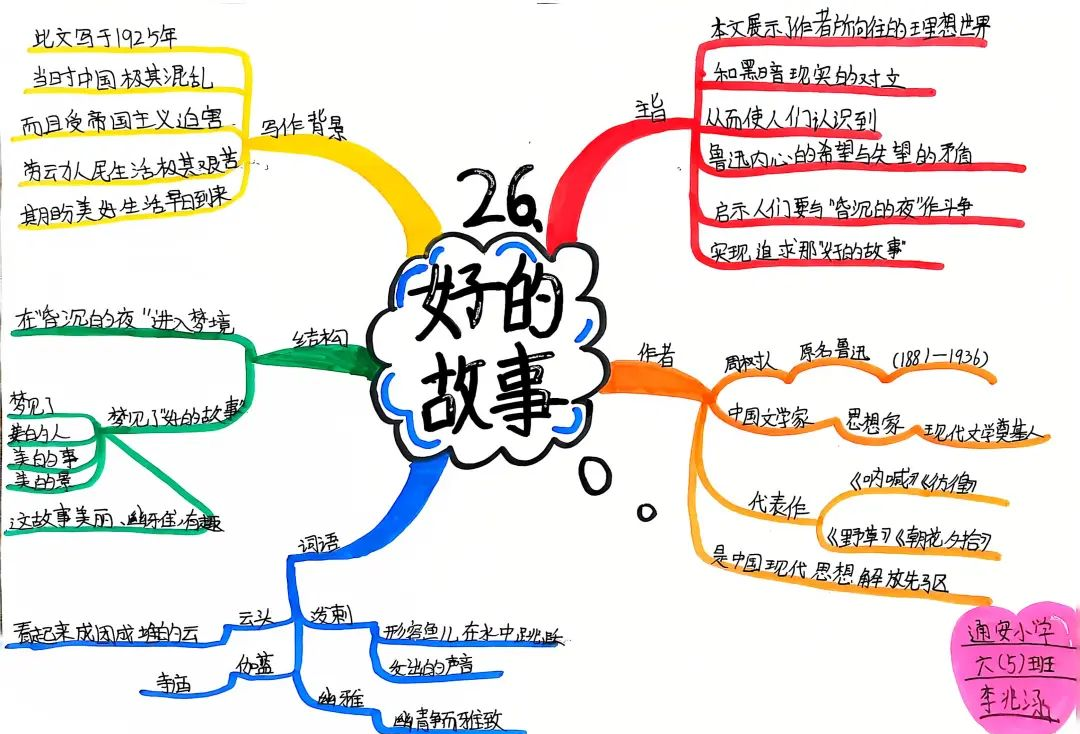 26、
好的
故事
写作背景
此文写于1925年
当时中国极其混乱
而且受帝国主义迫害
劳动人民生活极其艰苦
期盼美好生活早日到来
主旨
本文展示了作者所向往的理想世界
和黑暗现实的对立
从而使人们认识到
鲁迅内心的希望与失望的矛盾
启示人们要与“昏沉的夜”作斗争
实现追求那“好的故事”
结构
在“昏沉的夜”进入梦境
梦见了“好的故事”
梦见了
美的人
美的事
美的景
这故事美丽、幽雅、有趣
作者
周树人 原名鲁迅 (1881—1936)
中国文学家 思想家 现代文学奠基人
代表作
《呐喊》《彷徨》
《野草》《朝花夕拾》
是中国现代思想解放先驱
词语
云头
看起来成团成堆的云
伽蓝
寺庙
泼刺
形容鱼儿在水中跳跃
发出的声音
幽雅
幽静而雅致
通安小学
六(5)班
李兆涵